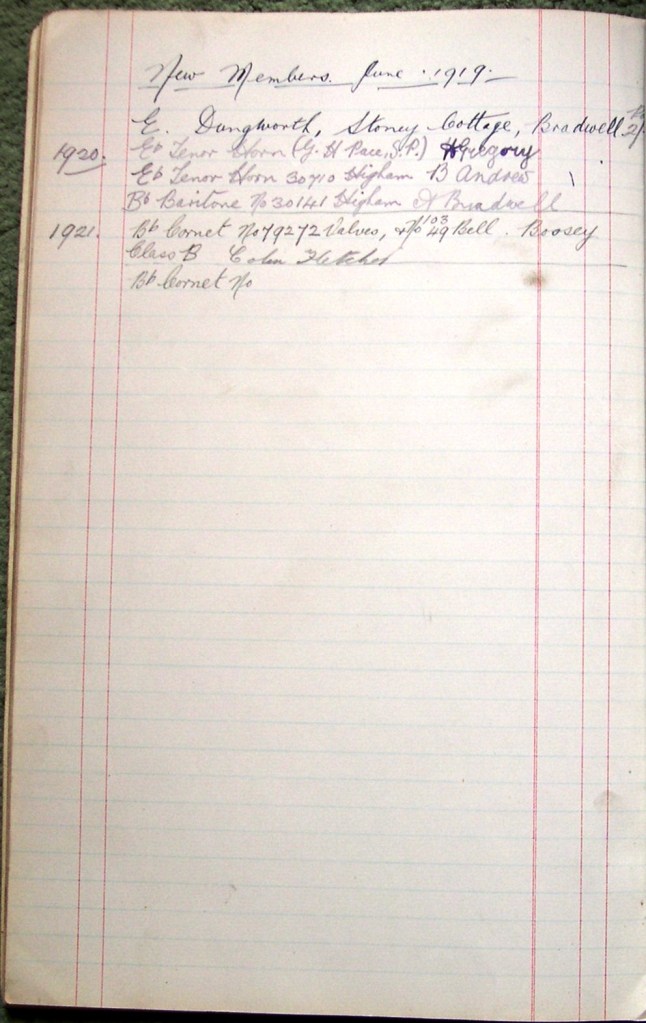 New Members. June. 1919.
E. Dungworth, Stoney Cottage, Bradwell 2/
1920. Eb Tenor Horn (G. H. Pace, J.P.) H Gregory
Eb Tenor Horn 30710 Higham B Andrew
Bb Baritone No 30141 Higham A Bradwell
1921. Bb Cornet No 79272 Valves, & No 103 49 Bell. Boosey
Class B Colin Fletcher
Bb Cornet No